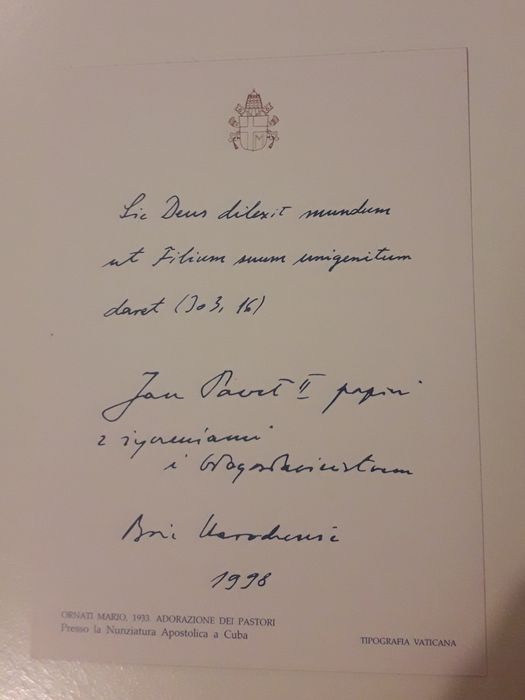 Sic Deus dilexit mundum
ut Filium suum unigenitum
daret (Jo 3, 16)
Jan Paweł II papież
z życzeniami
i błogosławieństwem
Boże Narodzenie
1998
ORNATI MARIO, 1933. ADORAZIONE DEI PASTORI
Presso la Nunziatura Apostolica a Cuba
TIPOGRAFIA VATICANA